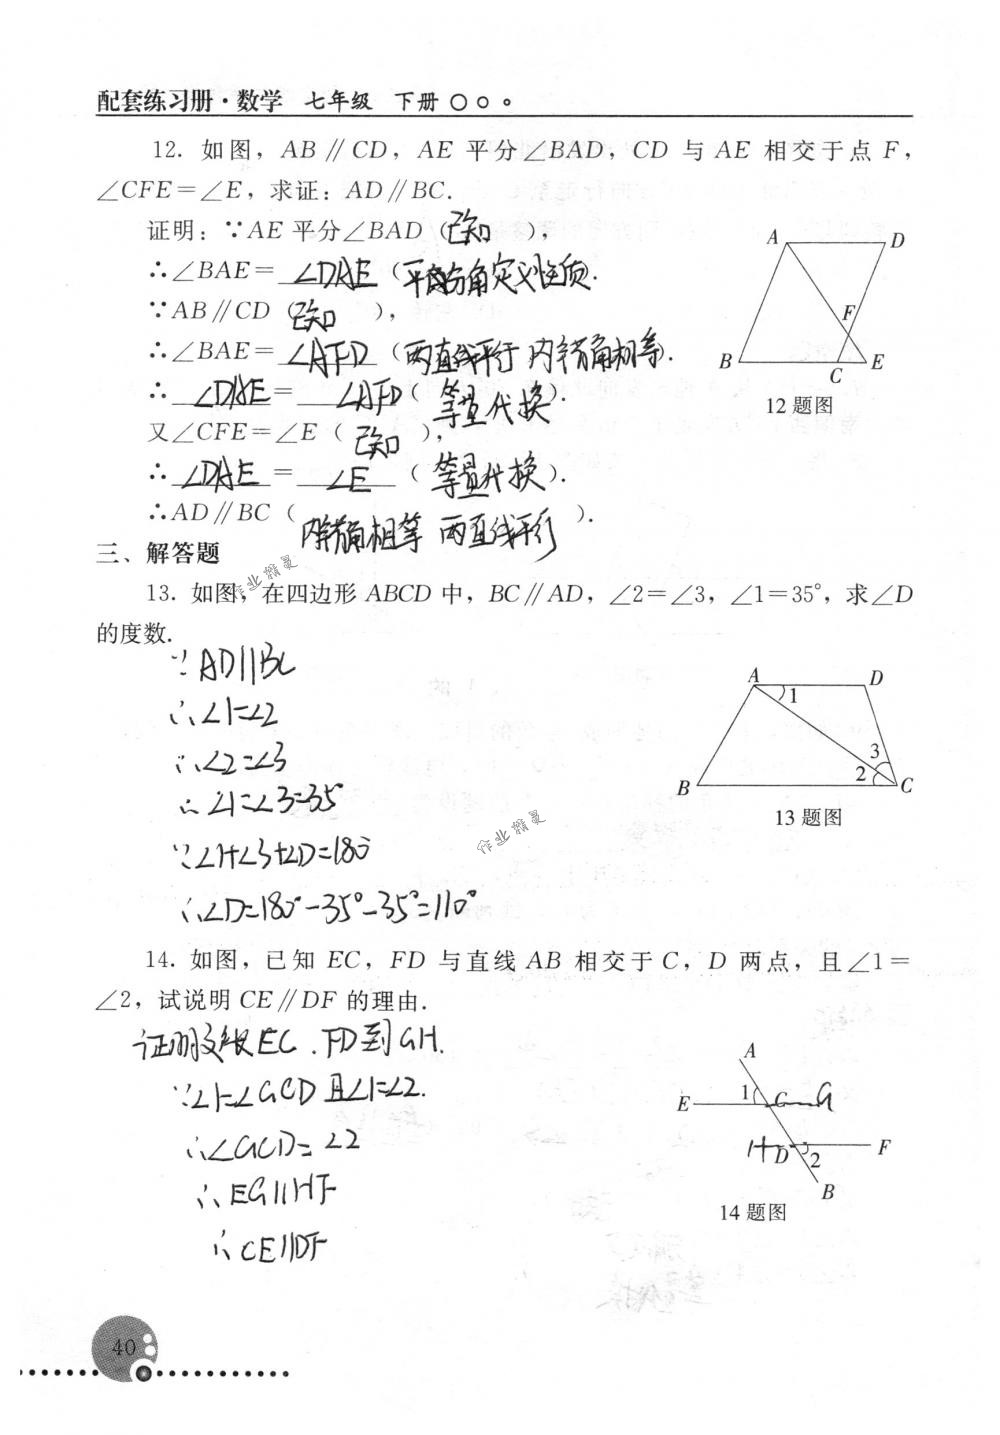 配套练习册·数学 七年级 下册
12. 如图，AB∥CD，AE 平分∠BAD，CD 与 AE 相交于点 F，
∠CFE=∠E，求证：AD∥BC.
证明：∵AE 平分∠BAD（已知），
∴∠BAE= ∠DAE（
∵AB∥CD（已知），
∴∠BAE= ∠AFD（两直线平行 内错角相等）.
∴ ∠DAE = ∠AFD（等量代换）.
又∠CFE=∠E（已知），
∴ ∠DAE = ∠E（等量代换）.
∴AD∥BC（内错角相等 两直线平行）.
A
D
F
B
C
E
12题图
三、解答题
13. 如图，在四边形 ABCD 中，BC∥AD，∠2=∠3，∠1=35°，求∠D
的度数.
∵AD∥BC
∴∠1=∠2
∵∠2=∠3
∴∠1=∠3=35°
∵∠1+∠3+∠D=180
∴∠D=180°-35°-35°=110°
A
D
1
3
2
B
C
13题图
作业精灵
作业精灵
14. 如图，已知 EC，FD 与直线 AB 相交于 C，D 两点，且∠1=
∠2，试说明 CE∥DF 的理由.
证明 EC、FD到GH.
∵∠1=∠GCD 且∠1=∠2.
∴∠GCD=∠2
∴EG∥HF
∴CE∥DF
A
1
E
C
G
H
D
2
F
B
14题图
40